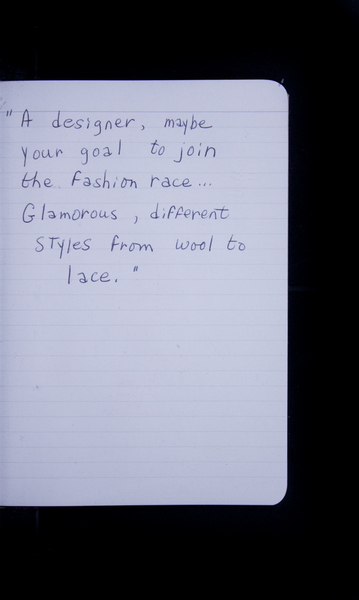 "A designer, maybe
your goal to join
the fashion race...
Glamorous, different
styles from wool to
lace."